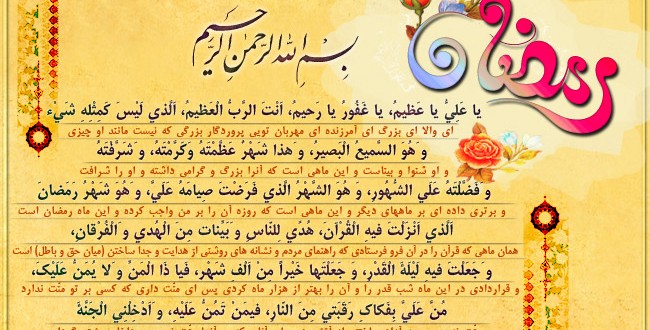 رمضان
بِسْمِ اللهِ الرَّحْمٰنِ الرَّحیمِ
یا عَلِیُّ یا عَظیمُ، یا غَفُورُ یا رَحیمُ، اَنْتَ الرَّبُّ الْعَظیمُ، اَلَّذی لَیْسَ کَمِثْلِهِ شَیْء
ای والا ای بزرگ ای آمرزنده ای مهربان تویی پروردگار بزرگی که نیست مانند او چیزی
وَ هُوَ السَّمیعُ الْبَصیرُ، وَ هذا شَهْرٌ عَظَّمْتَهُ وَکَرَّمْتَهُ، وَ شَرَّفْتَهُ
و او شنوا و بیناست و این ماهی است که آنرا بزرگ و گرامی داشته و او را شرافت
وَ فَضَّلْتَهُ عَلَی الشُّهُورِ، وَ هُوَ الشَّهْرُ الَّذی فَرَضْتَ صِیامَهُ عَلَیَّ، وَ هُوَ شَهْرُ رَمَضانَ
و برتری داده ای بر ماههای دیگر و این ماهی است که روزه آن را بر من واجب کرده و این ماه رمضان است
اَلَّذی اَنْزَلْتَ فیهِ الْقُرْآنَ، هُدیً لِلنّاسِ وَ بَیِّناتٍ مِنَ الْهُدی وَ الْفُرْقانِ،
همان ماهی که قرآن را در آن فرو فرستادی که راهنمای مردم و نشانه های روشنی از هدایت و جدا ساختن (میان حق و باطل) است
وَ جَعَلْتَ فیهِ لَیْلَةَ الْقَدْرِ، وَ جَعَلْتَها خَیْراً مِنْ اَلْفِ شَهْرٍ، فَیا ذَا الْمَنِّ وَ لا یُمَنُّ عَلَیْکَ،
و قراردادی در این ماه شب قدر را و آن را بهتر از هزار ماه کردی پس ای منّت داری که کسی بر تو منّت ندارد
مُنَّ عَلَیَّ بِفَکاکِ رَقَبَتی مِنَ النّارِ، فیمَنْ تَمُنُّ عَلَیْهِ، وَ اَدْخِلْنِی الْجَنَّةَ